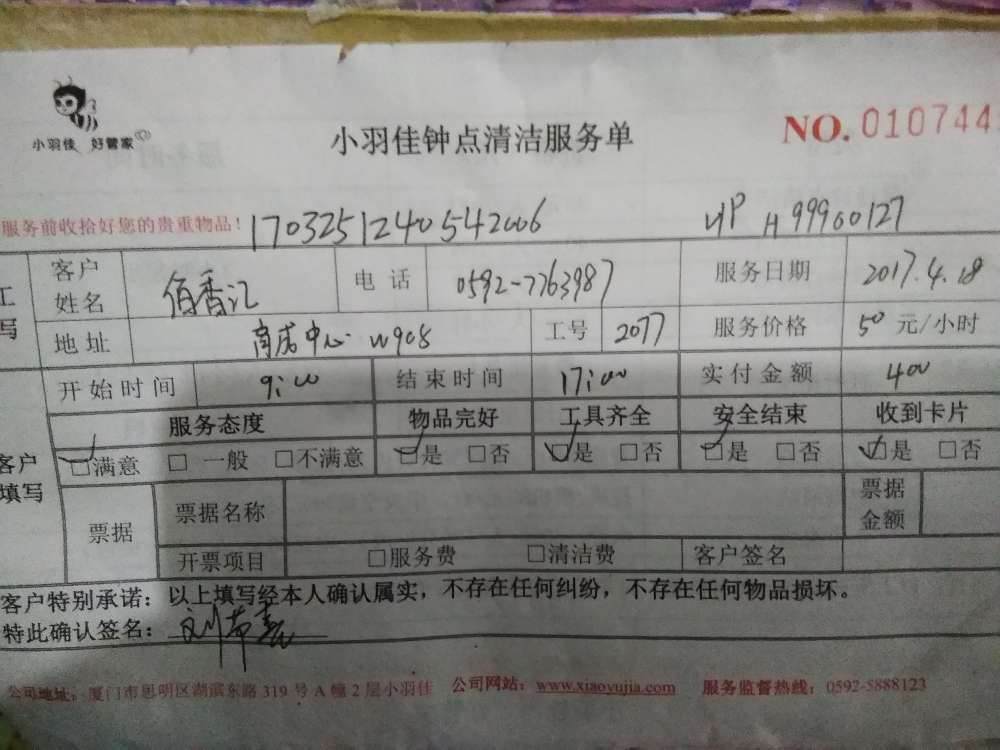 小羽佳 好管家
小羽佳钟点清洁服务单
NO. 010744
服务前收拾好您的贵重物品! 1703251240542006 H99960127
客户姓名 佰香汇 电话 0592-7763987 服务日期 2017.4.18
地址 育成中心 W908 工号 2077 服务价格 50 元/小时
开始时间 9:00 结束时间 17:00 实付金额 400
服务态度 物品完好 工具齐全 安全结束 收到卡片
客户填写 □满意 □一般 □不满意 □是 □否 □是 □否 □是 □否 □是 □否
票据 票据名称 票据金额
开票项目 □服务费 □清洁费 客户签名
客户特别承诺：以上填写经本人确认属实，不存在任何纠纷，不存在任何物品损坏。
特此确认签名：
公司地址：厦门市思明区湖滨东路 319 号 A 幢 2 层小羽佳 公司网站：www.xiaoyujia.com 服务监督热线：0592-5888123